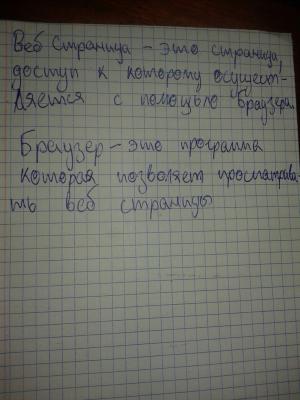 Веб страница - это страница,
доступ к которому осущест-
вляется с помощью браузера.
Браузер - это программа
которая позволяет просматрива-
ть веб страницы